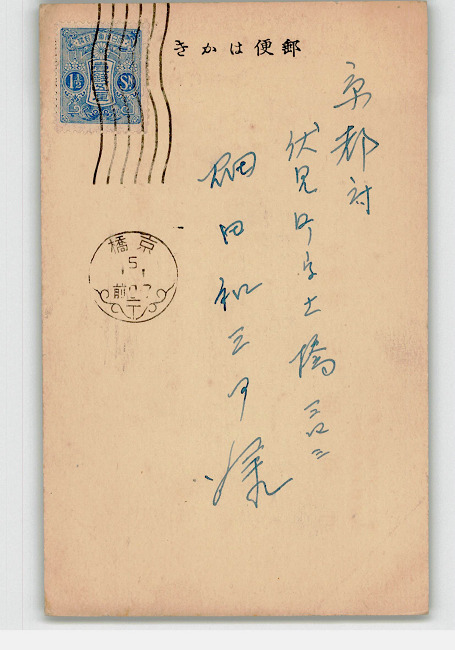 郵便はかき
京都府
伏見町字土橋三四三
細田和三郎様
1½ Sn
京橋
5
1.1
前0-7